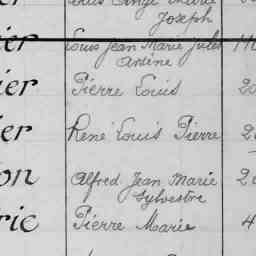 Joseph
ier Louis Jean Marie Jules
Arsène
ier Pierre Louis 20
er René Louis Pierre 2
on Alfred Jean Marie 2
Sylvestre
rie Pierre Marie 4